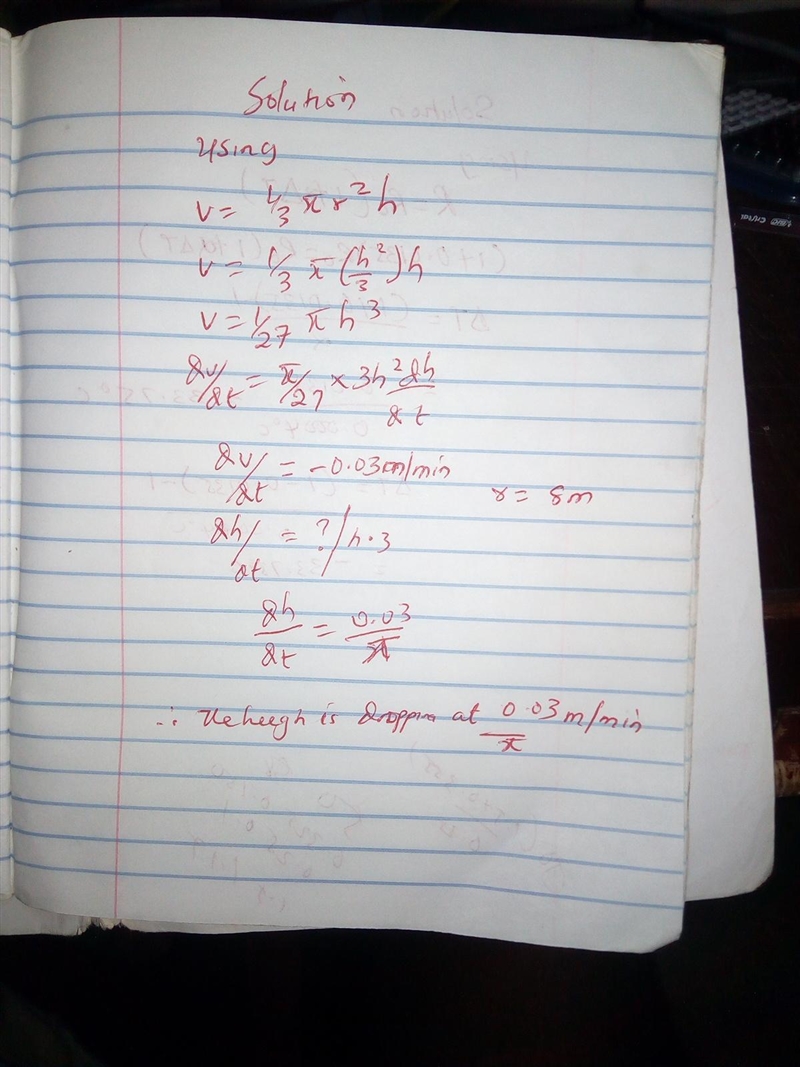 Solution
Using
V = 1/3 π r² h
V = 1/3 π (h²/3) h
V = 1/27 π h³
dv/dt = π/27 × 3h² dh/dt
dv/dt = -0.03m/min r = 8m
dh/dt = ?/h.3
dh/dt = 0.03/π
∴ is dropping at 0.03/π m/min